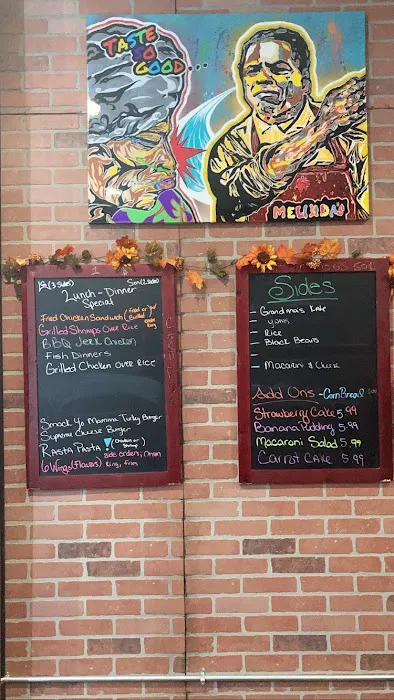 TASTE
SO
GOOD...
MELINDA'S
(3 sides)
(2 sides)
Lunch - Dinner
Special
Fried Chicken Sandwich
Grilled Shrimps Over Rice
BBQ Jerk Chicken
Fish Dinners
Grilled Chicken Over Rice
Smack Yo Mamma Turkey Burger
Supreme Cheese Burger
Rasta Pasta (Chicken or Shrimp)
6 Wings (Flavors)
side orders; Onion
Ring, fries
Sides
- Grandma's Kale
- Yams
- Rice
- Black Beans
- Macaroni & Cheese
Add Ons - Corn Bread
Strawberry Cake 5.99
Banana Pudding 5.99
Macaroni Salad 5.99
Carrot Cake 5.99